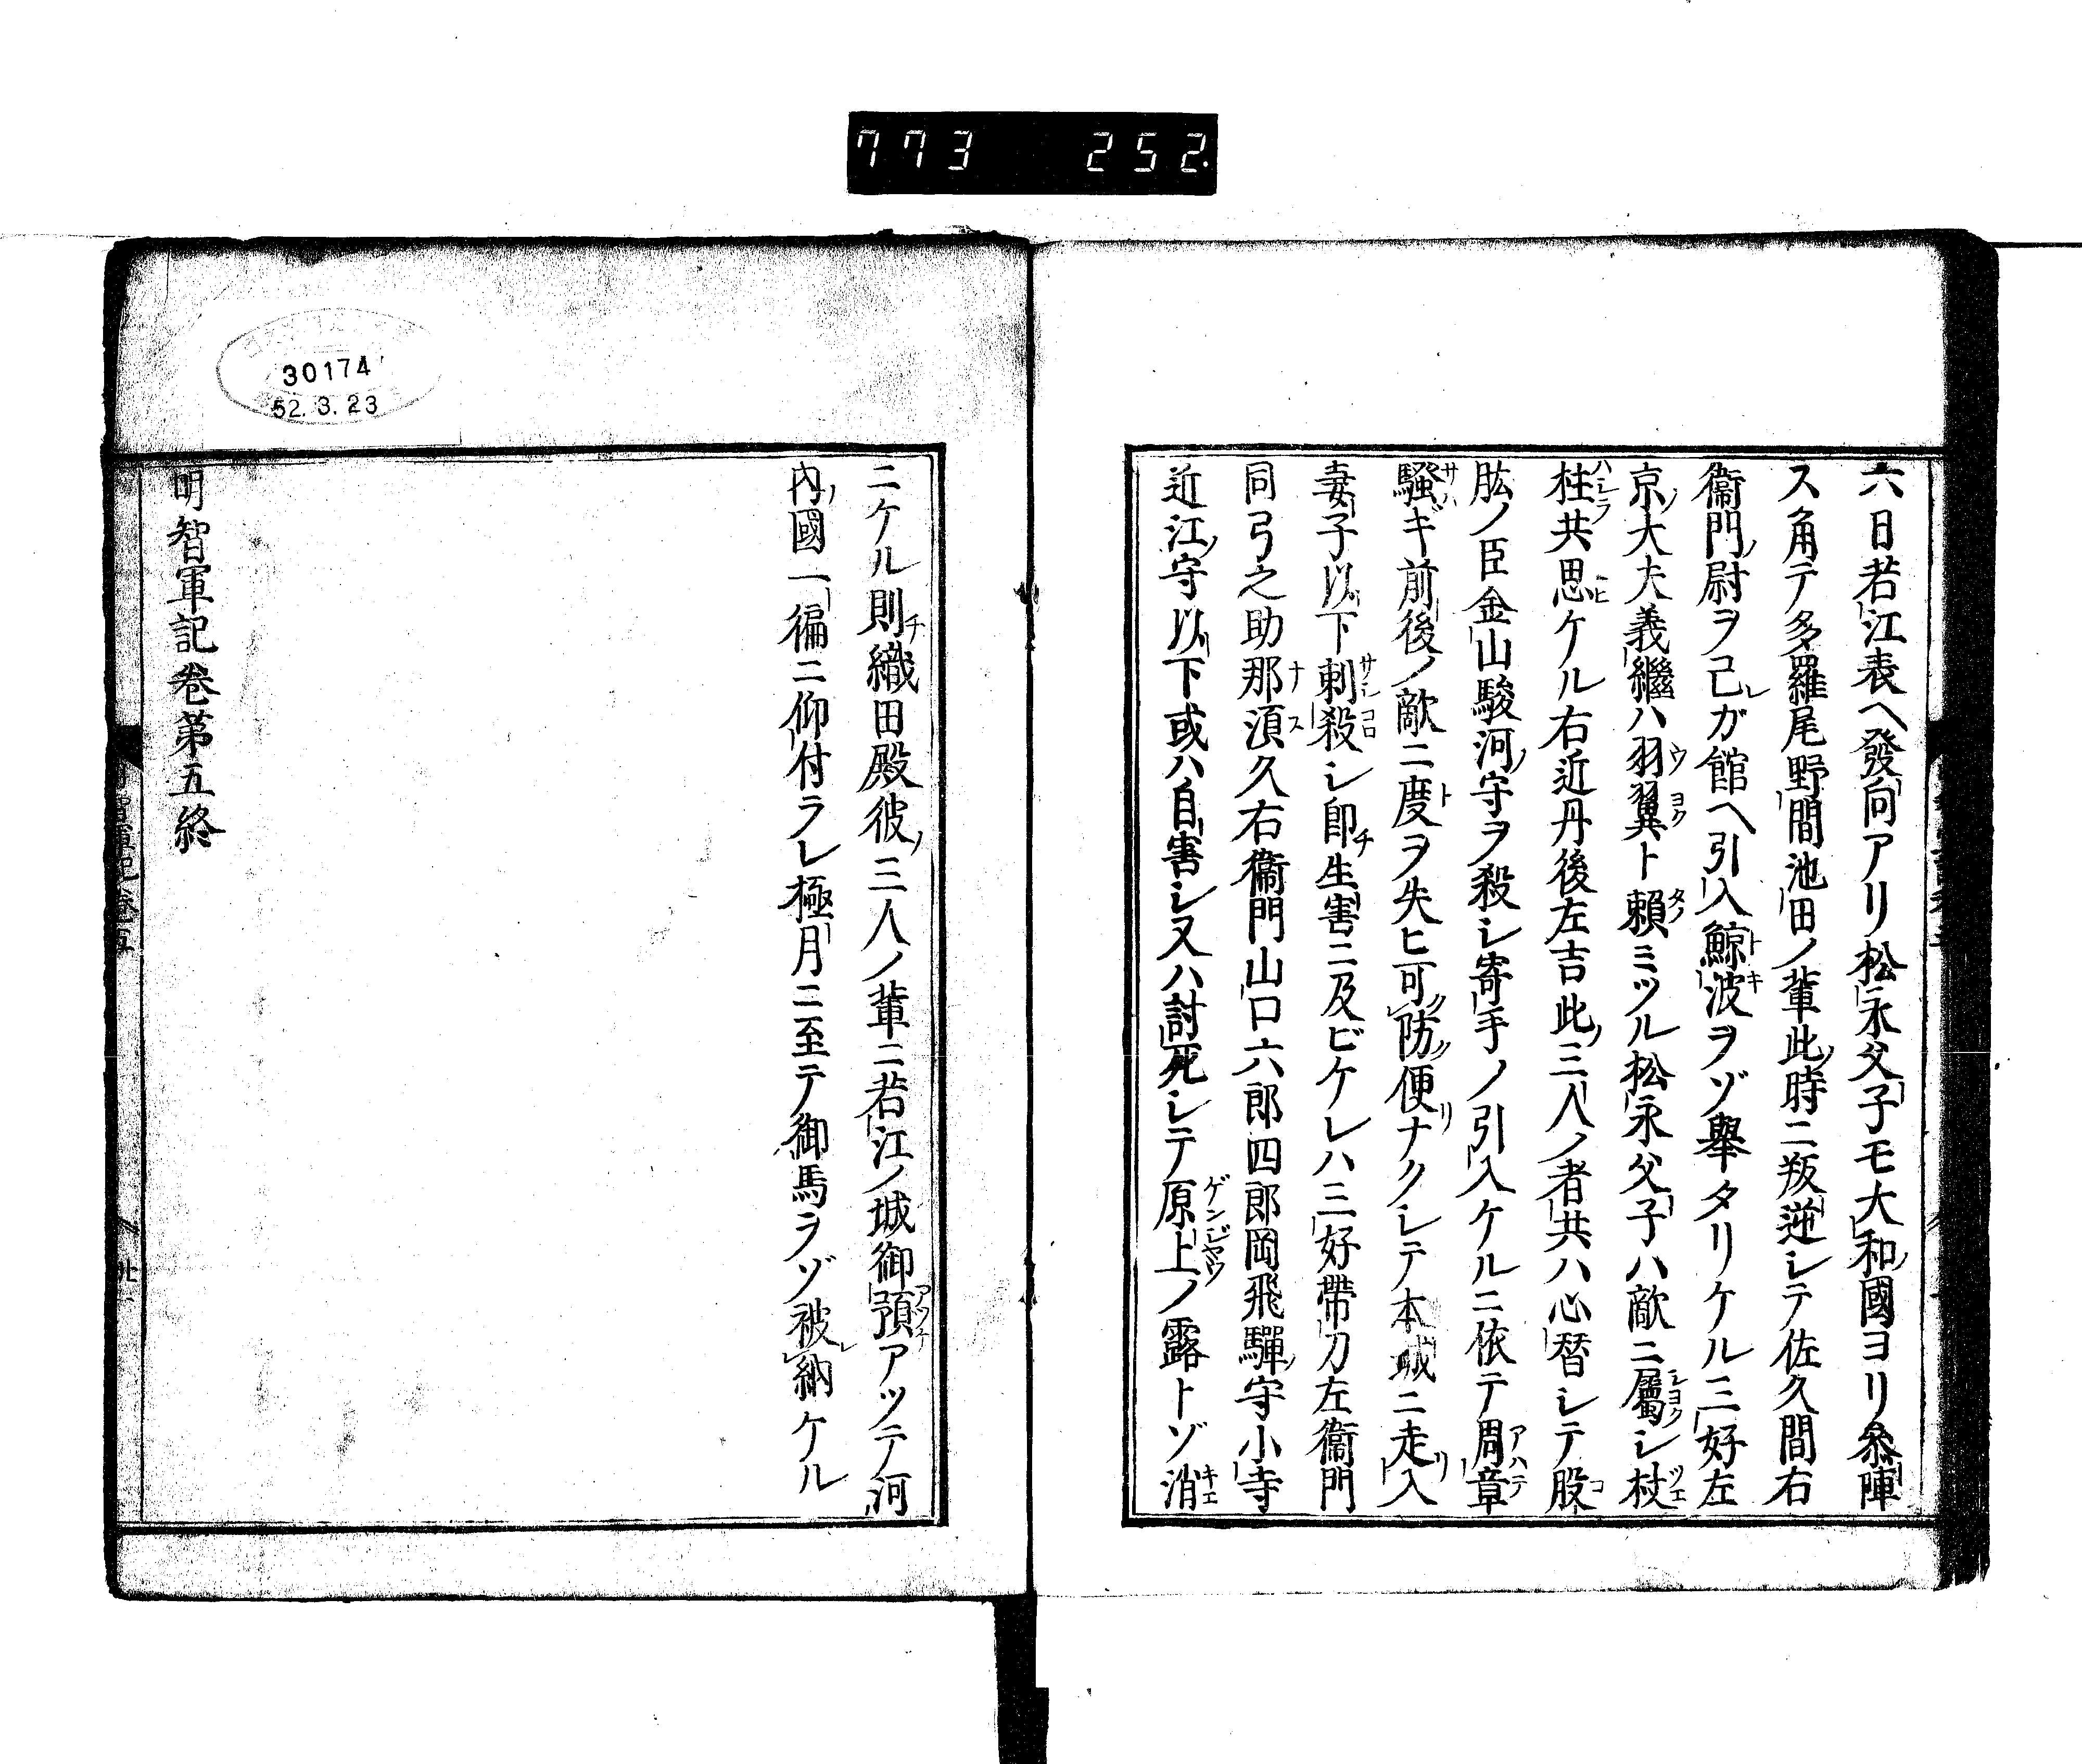 773 252
六日若江表へ發向アリ松永父子モ大和國ヨリ叅陣
ス角テ多羅尾野間池田ノ輩此時ニ叛逆シテ佐久間右
衞門尉ヲ己レガ館ヘ引入鯨波ヲゾ擧タリケル三好左
京大夫義繼ハ羽翼ト頼ミツル松永父子ハ敵ニ屬シ杖
柱共思ケル右近丹後左吉此三人ノ者共ハ心替シテ股
肱ノ臣金山駿河守ヲ殺シ寄手ノ引入ケルニ依テ周章
騷ギ前後ノ敵ニ度ヲ失ヒ可防便ナクシテ本城ニ走入
妻子以下刺殺シ即生害ニ及ビケレハ三好帶刀左衞門
同弓之助那須久右衞門山口六郎四郎岡飛驒守小寺
近江守以下或ハ自害シ又ハ討死シテ原上ノ露トゾ消
ニケル則織田殿彼三人ノ輩ニ若江ノ城御預アツテ河
內國一徧ニ仰付ラレ極月ニ至テ御馬ヲゾ被納ケル
明智軍記卷第五終
30174
52.3.23